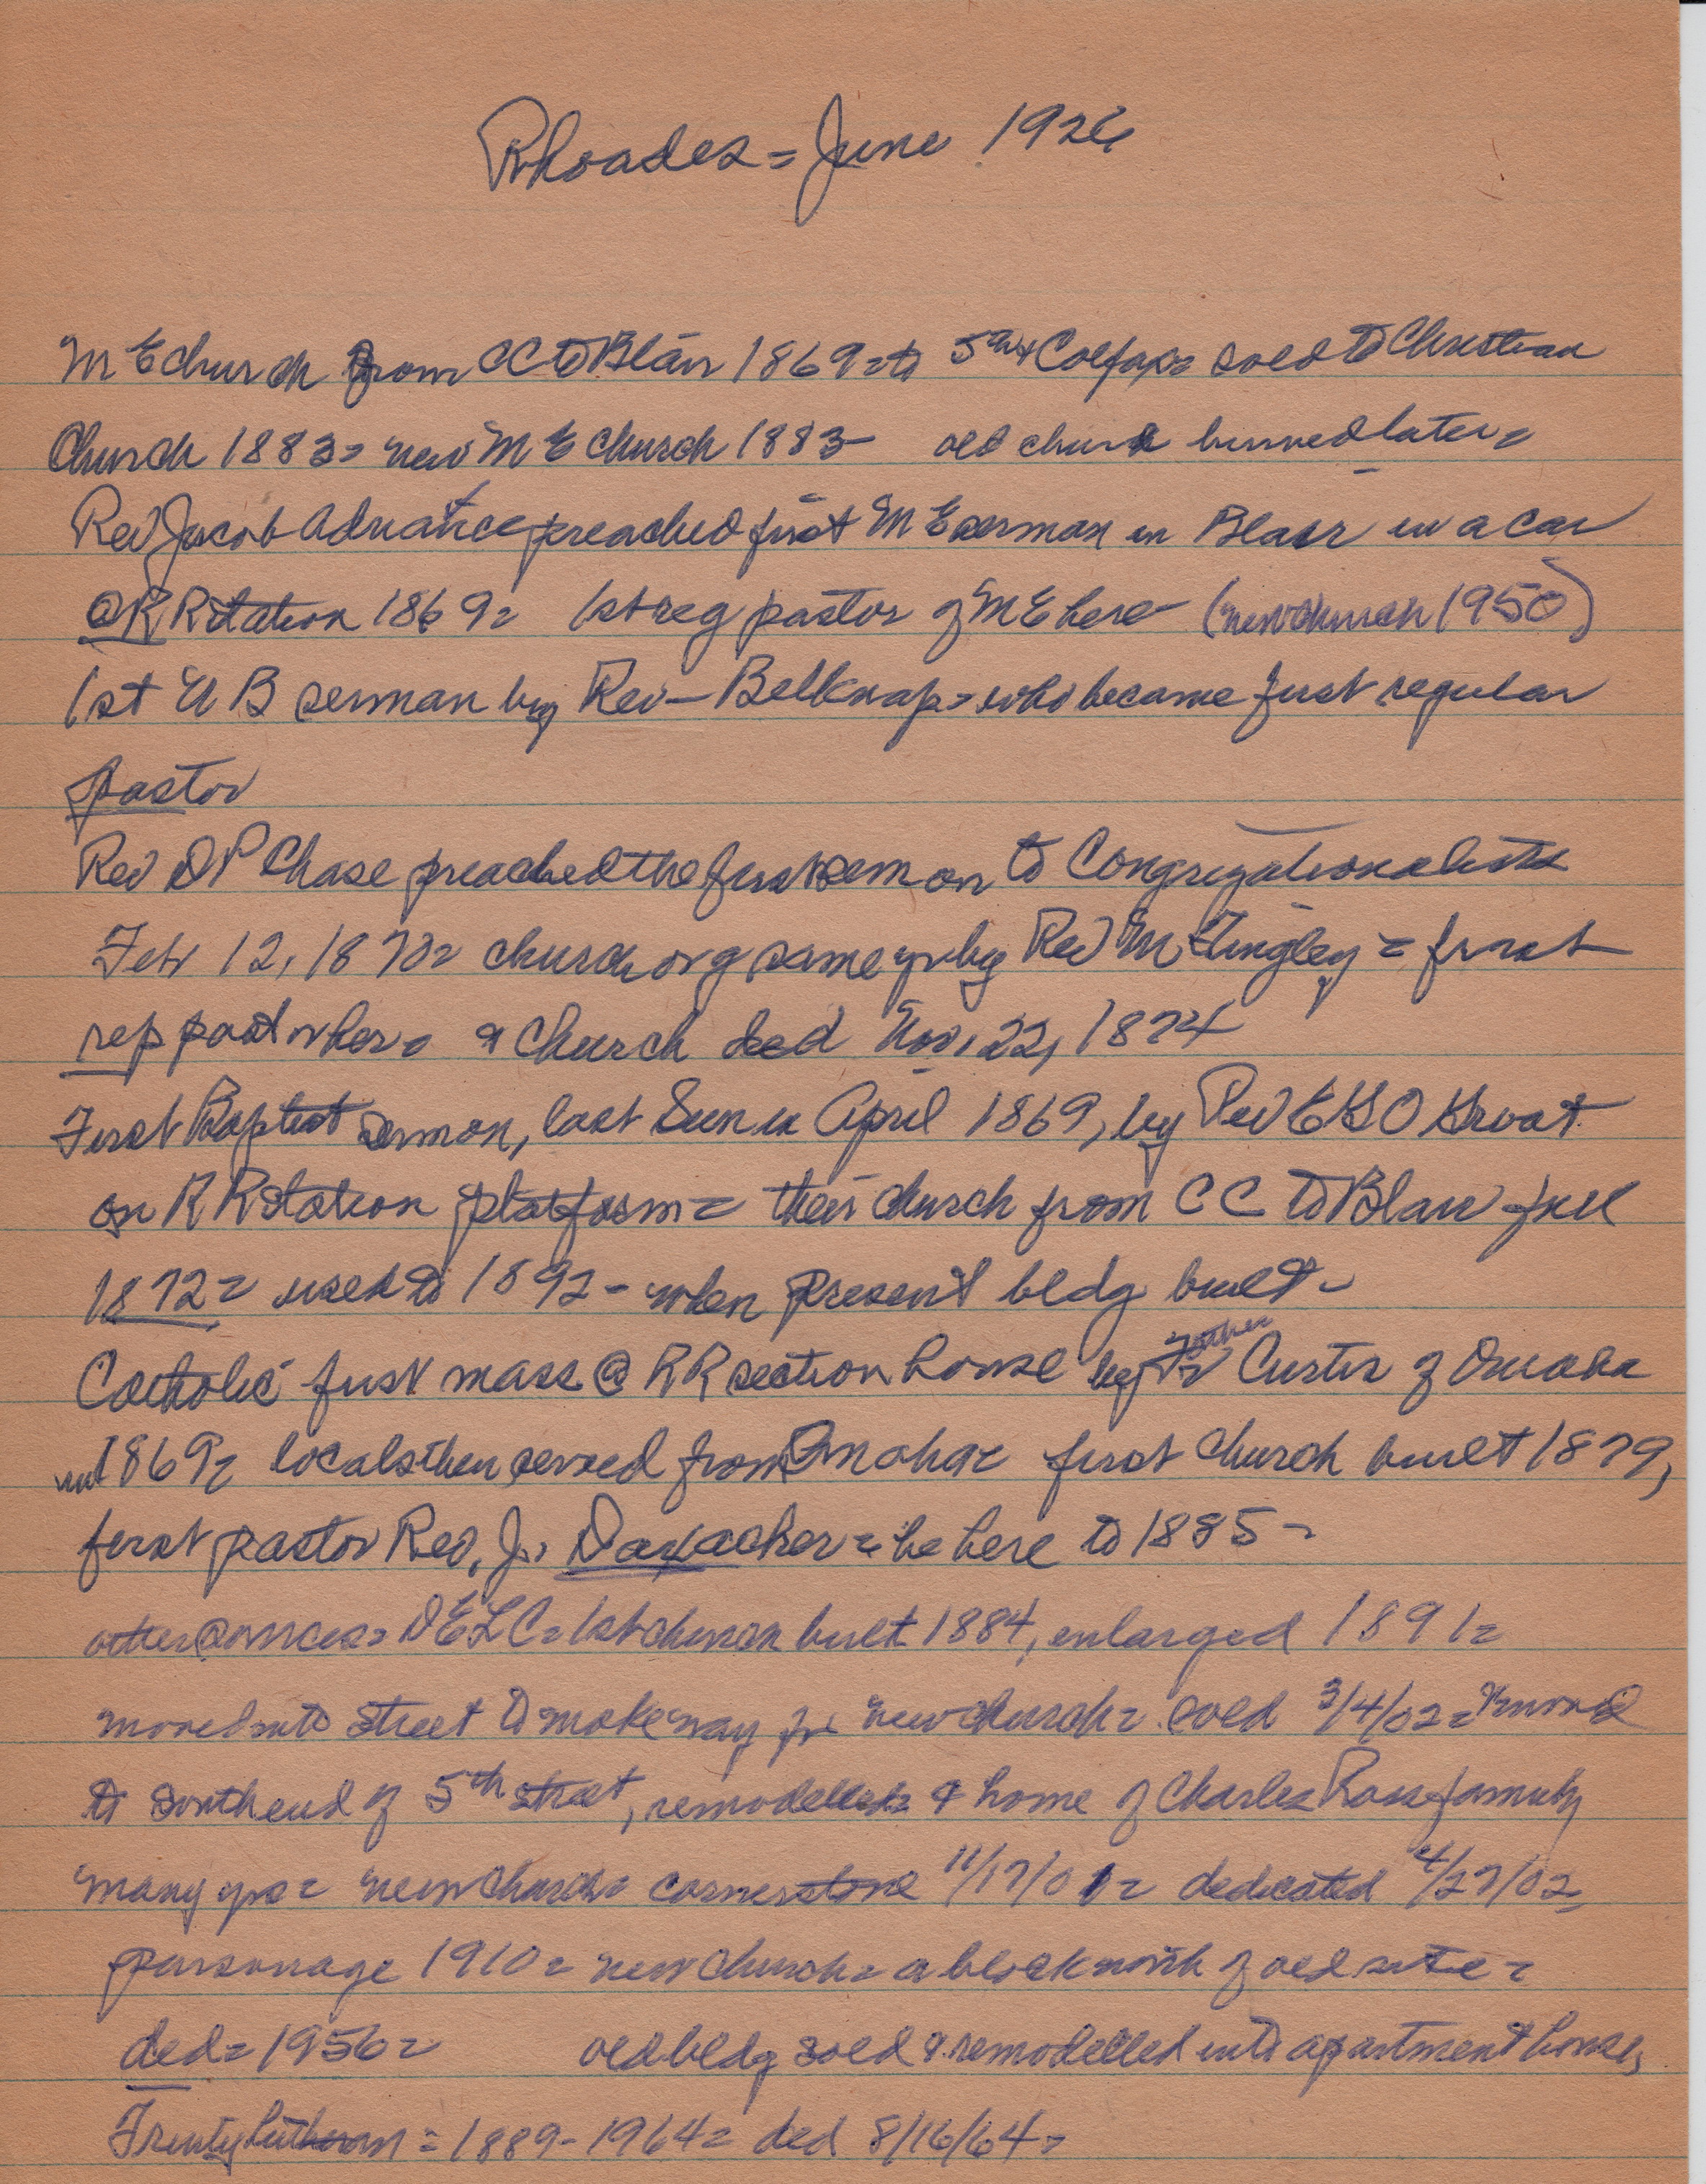 Rhoades = June 1926
M E church from CC to Blair 1869 = to 5th & Colfax = sold to Christian
Church 1883 = new M E Church 1883 - old church burned later =
Rev Jacob Adriance preached first M E sermon in Blair in a car
@ R R station 1869 = 1st reg pastor of M E here - (new church 1950)
1st U B sermon by Rev - Belknap = who became first regular
pastor
Rev O P Chase preached the first sermon to Congregationalists
Feb 12, 1870 = church org same yr by Rev M Tingley = first
rep pastor here = & church ded Nov, 22, 1874
First Baptist sermon, last Sun in April 1869, by Rev E G O Groat
on R R station platform = their church from C C to Blair fall
1872 = used to 1892 - when present bldg built -
Catholic first mass @ R R section house by Father Curtis of Omaha
in 1869 = locals then served from Omaha = first church built 1879,
first pastor Rev, J, Daxacher = he here to 1885 =
other sources = D E L C = 1st church built 1884, enlarged 1891 =
moved into street to make way for new church = sold 3/4/02 = & moved
to south end of 5th street, remodelled = & home of Charles Ross family
many yrs = new church = cornerstone 11/17/01 = dedicated 4/27/02,
parsonage 1910 = new church = a block north of old site =
ded = 1956 = old bldg sold & remodelled into apartment house,
Trinity Lutheran = 1889 - 1964 = ded 8/16/64 =